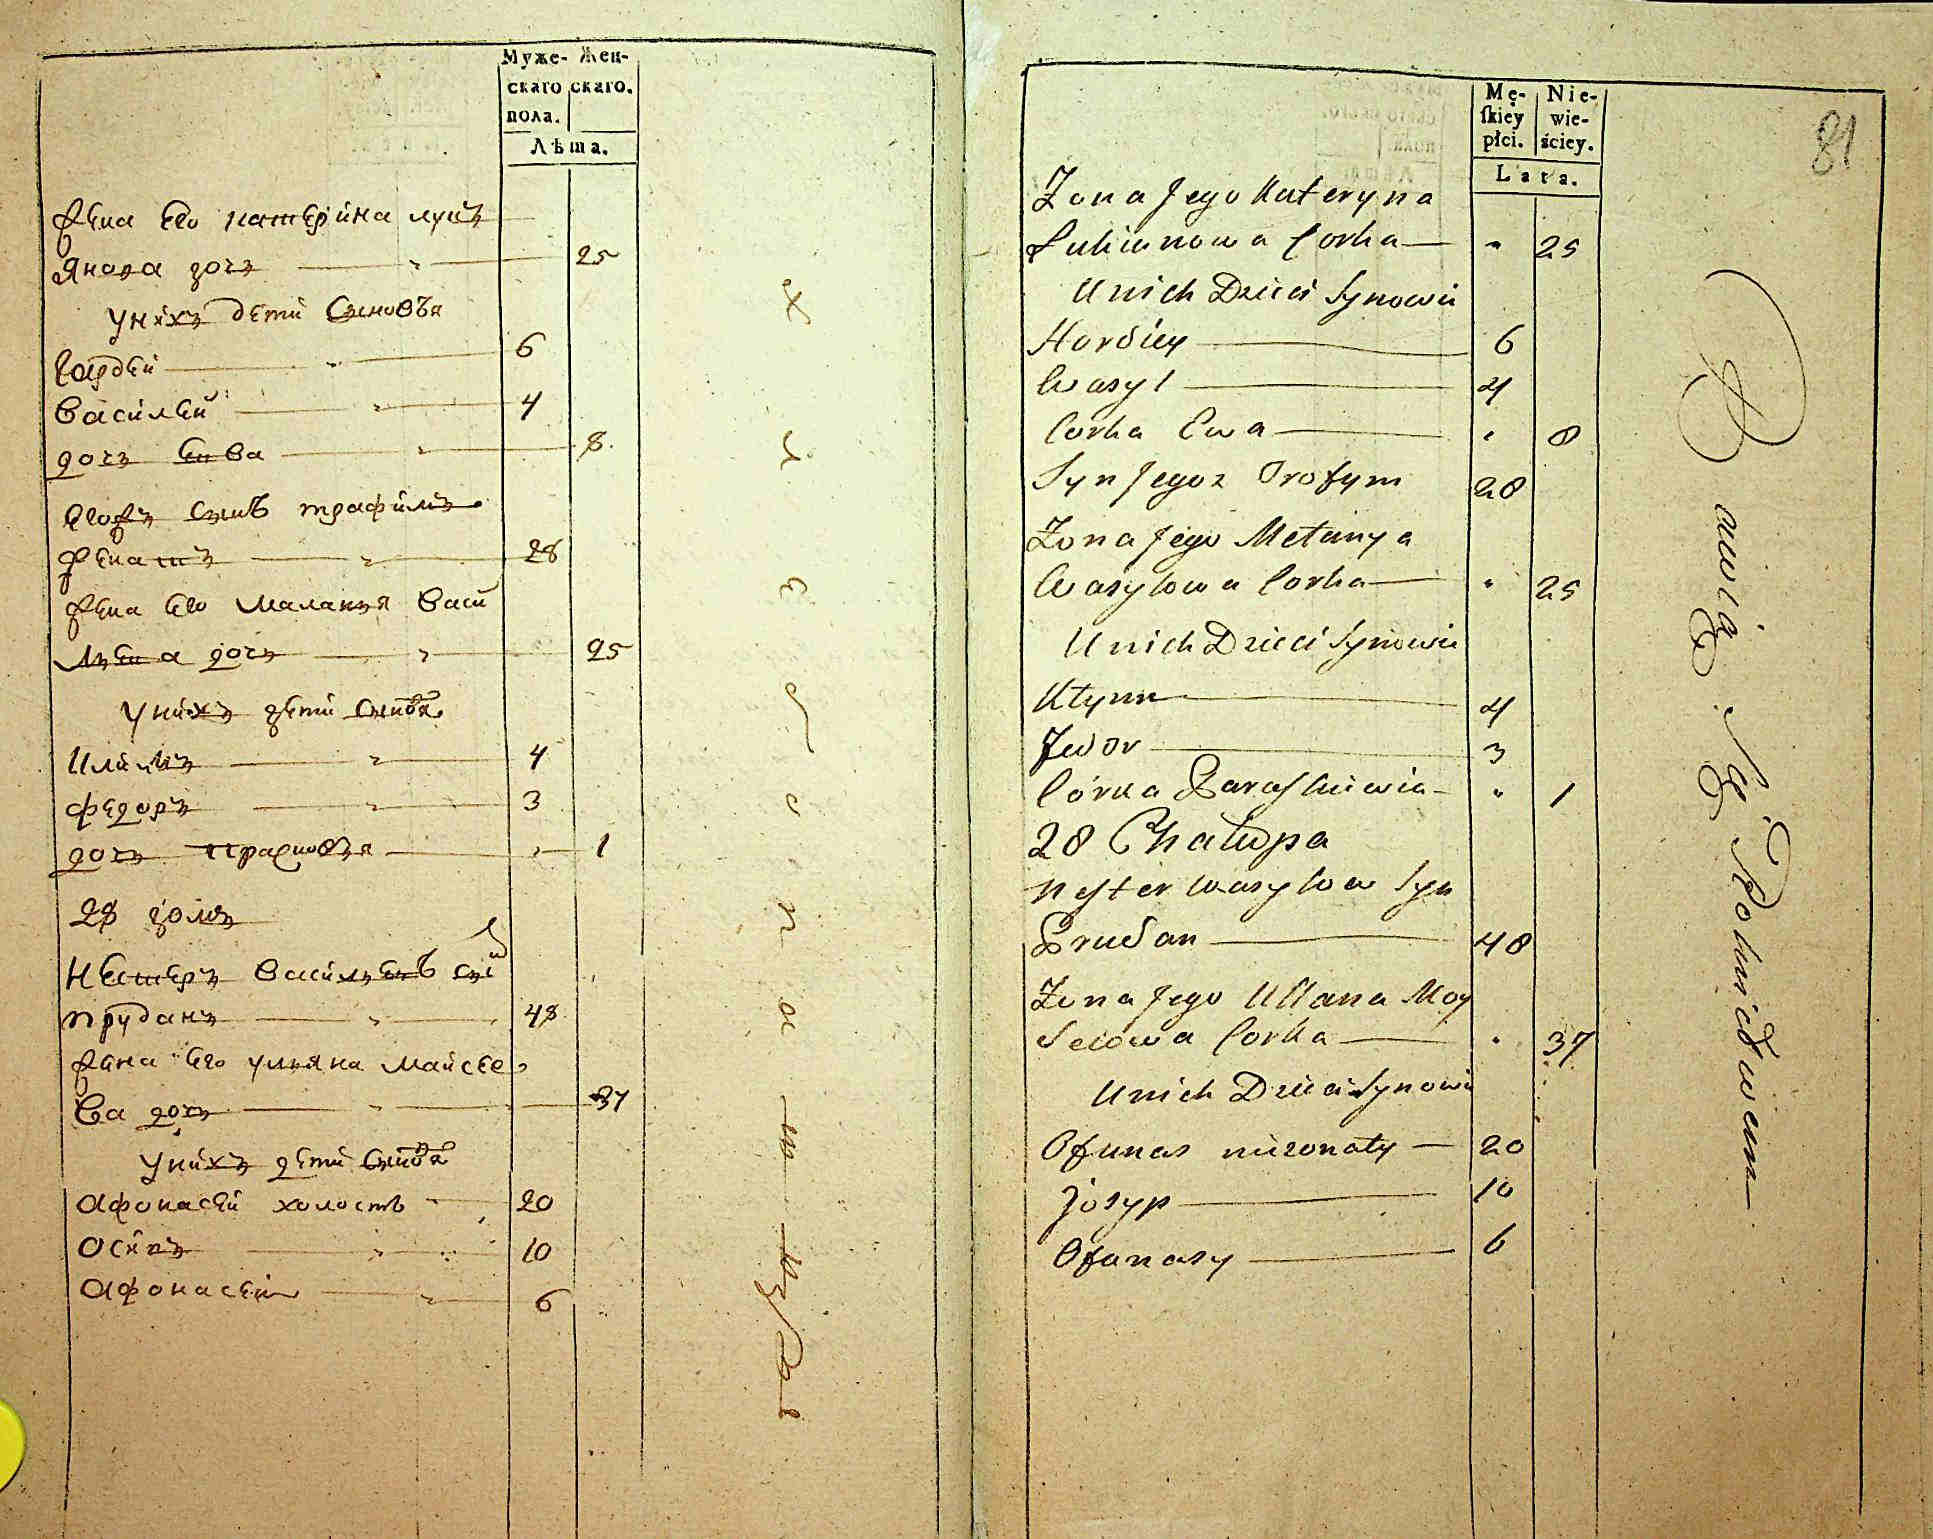 Муже- Жен-
скаго скаго.
пола.
Лѣта.
Жена Его катерина лукъ
Янова дочъ " 25
Унихъ дети Сыновъя
Гардей " 6
Василий " 4
дочъ Ева " 8
Егожъ Сынъ трафимъ
женатъ " 28
Жена Его Маланъя Васи
лъева дочъ " 25
Унихъ дети Сыновъя
Климъ " 4
федоръ " 3
дочъ Прасковъя " 1
28 домъ
Нестеръ Василъевъ Сынъ
Пруданъ " 48
Жена Его ульяна Майсее
ва дочъ " 37
Унихъ дети Сыновъя
Афонасей холостъ " 20
Осипъ " 10
Афонасей " 6
Mę- Nie-
ſkiey wie-
płci. ściey.
Lata.
81
Zona Jego Kateryna
Łukianowa Corka " 25
Unich Dzieci Synowie
Hordiey 6
Wasyl 4
Corka Ewa " 8
Syn Jegoz Trofym 28
Zona Jego Metanya
Wasylowa Corka " 25
Unich Dzieci Synowie
Kłym 4
Fedor 3
Córka Paraskiewia " 1
28 Chałupa
Nester Wasylow Syn
Prudan 48
Zona Jego Ullana Moy
Seiowa Corka " 37
Unich Dzieci Synowie
Ofunas niezonaty 20
Josyp 10
Ofanasy 6